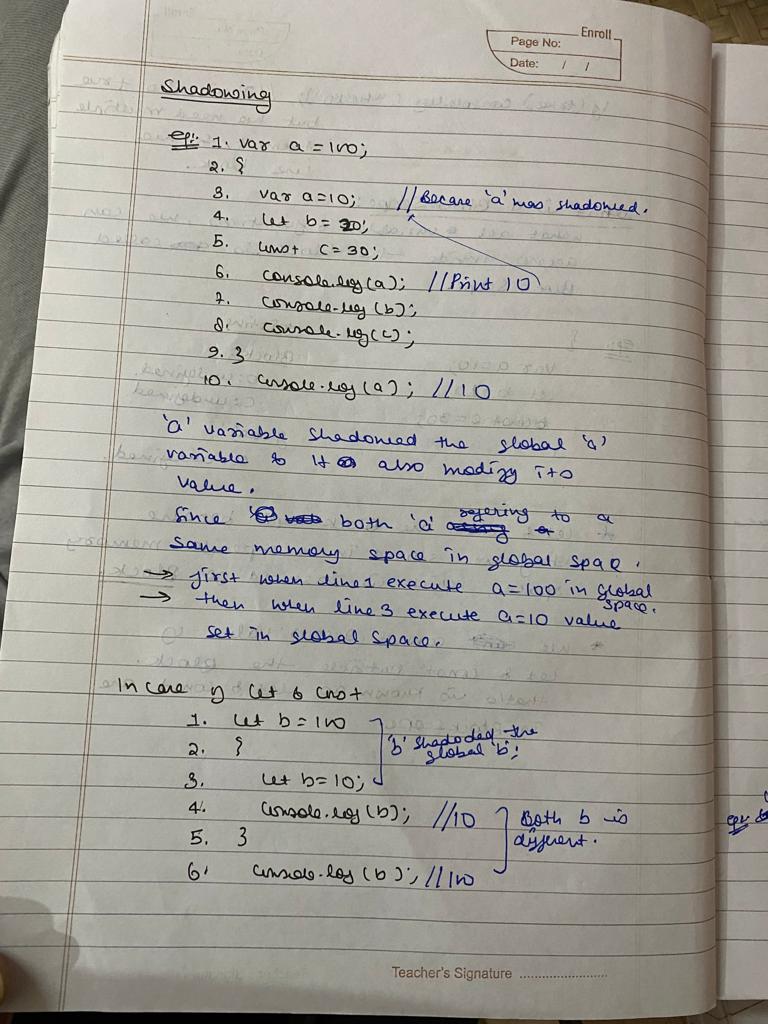 Enroll
Page No:
Date: / /
Shadowing
eg:- 1. var a = 100;
2. {
3. var a=10; // Because 'a' was shadowed.
4. let b = 20;
5. const c = 30;
6. console.log(a); // Print 10
7. console.log(b);
8. console.log(c);
9. }
10. console.log(a); // 10
'a' variable shadowed the global 'a'
variable & it also modify its
value.
Since both 'a' refering to a
same memory space in global space.
→ first when line 1 execute a=100 in global space.
→ then when line 3 execute a=10 value
set in global space.
In case of let & const
1. let b = 100
2. {
'b' shadoded the
global 'b';
3. let b=10;
4. console.log(b); // 10
Both b is
different.
5. }
6. console.log(b); // 100
eg:
Teacher's Signature ........................